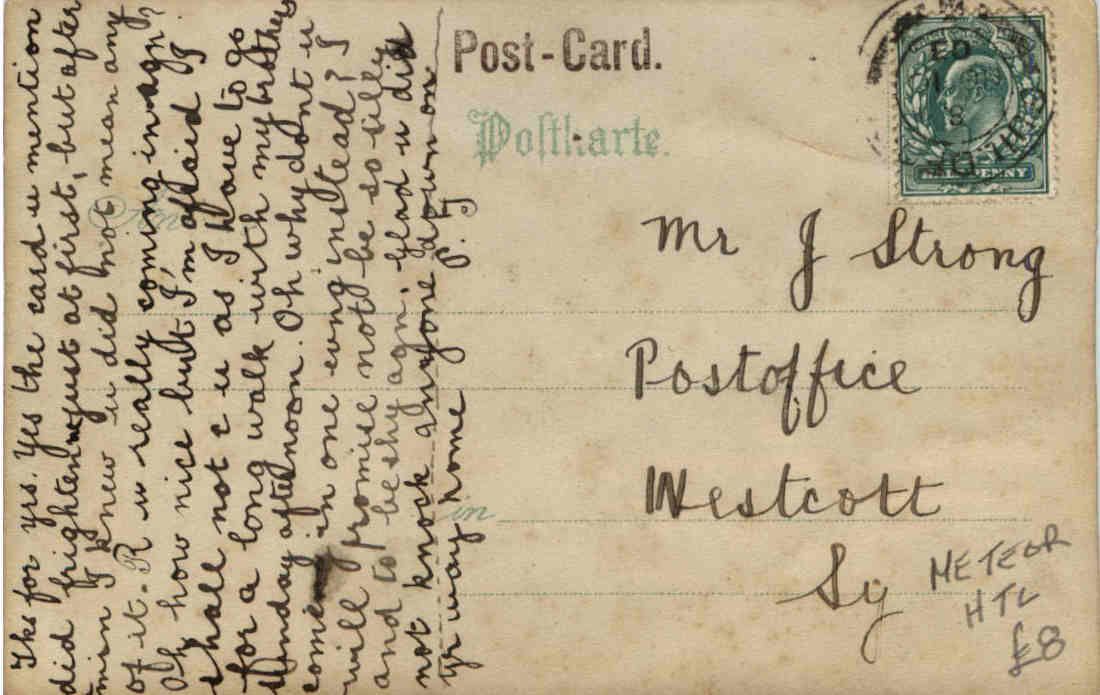 Tks for yrs. Yes the card u mention
did frighten me just at first, but after
min I knew u did not mean any
of it. R u really coming in agn?
Oh how nice but I'm afraid I
shall not c u as I have to go
for a long walk with my brother
Sunday afternoon. Oh why dont u
come in one evng instead? I
will promise not be so silly
and to be shy agn. Glad u did
not knock anyone down on
yr way home
Post-Card.
Postkarte.
PENNY
Mr J Strong
Postoffice
in
Westcott
Sy
METEOR
HTL
£8